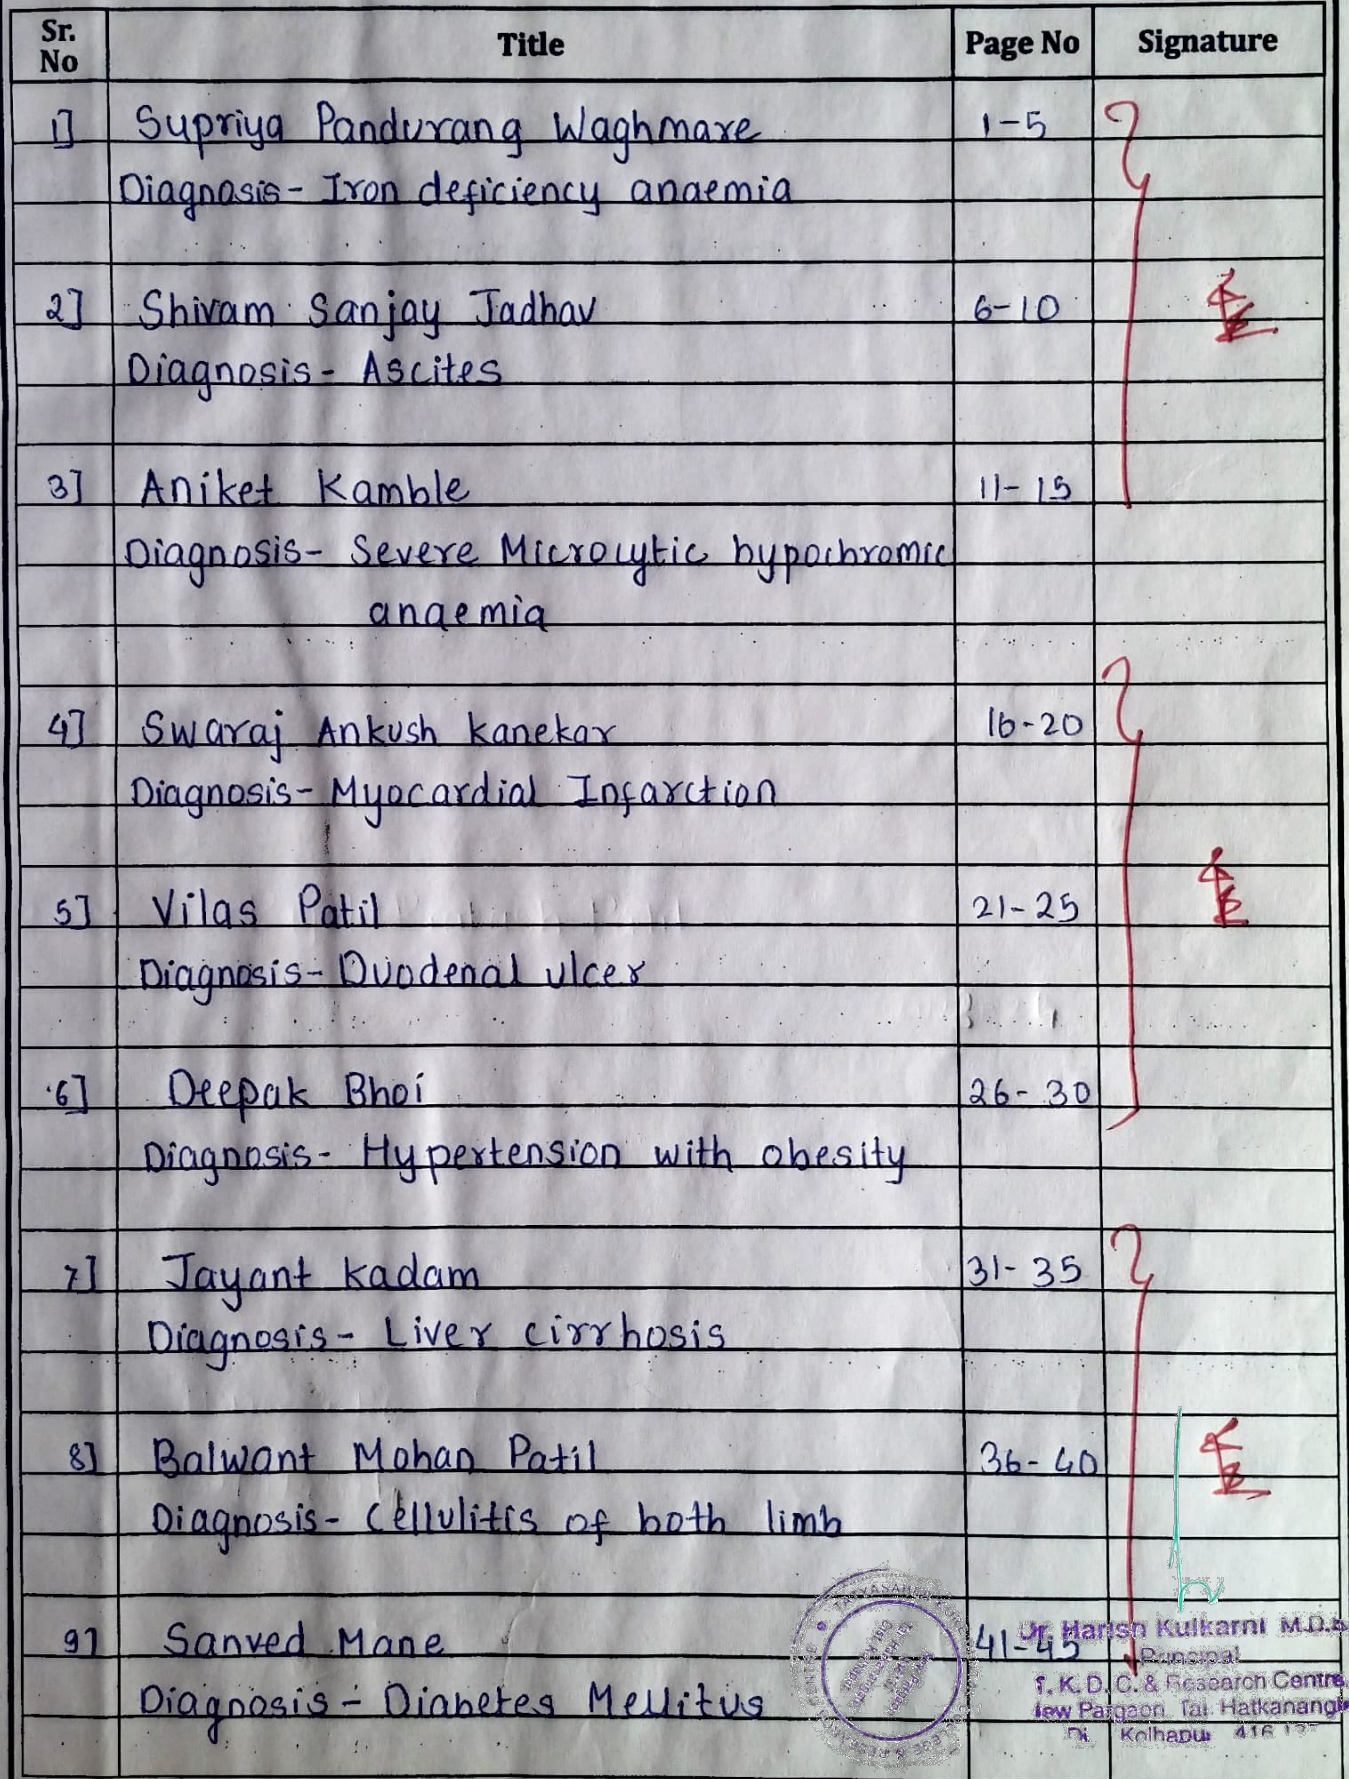 Sr. No Title Page No Signature
1] Supriya Pandurang Waghmare 1-5
Diagnosis- Iron deficiency anaemia
2] Shivam Sanjay Jadhav 6-10
Diagnosis- Ascites
3] Aniket Kamble 11-15
Diagnosis- Severe Microcytic hypochromic
anaemia
4] Swaraj Ankush Kanekar 16-20
Diagnosis- Myocardial Infarction
5] Vilas Patil 21-25
Diagnosis- Duodenal ulcer
6] Deepak Bhoi 26-30
Diagnosis- Hypertension with obesity
7] Jayant Kadam 31-35
Diagnosis- Liver cirrhosis
8] Balwant Mohan Patil 36-40
Diagnosis- Cellulitis of both limb
9] Sanved Mane 41-45
Diagnosis- Diabetes Mellitus
Dr. Harish Kulkarni M.D.S
Principal
T. K. D. C. & Research Centre
New Pargaon Tal Hatkanangle
Di Kolhapur 416 137